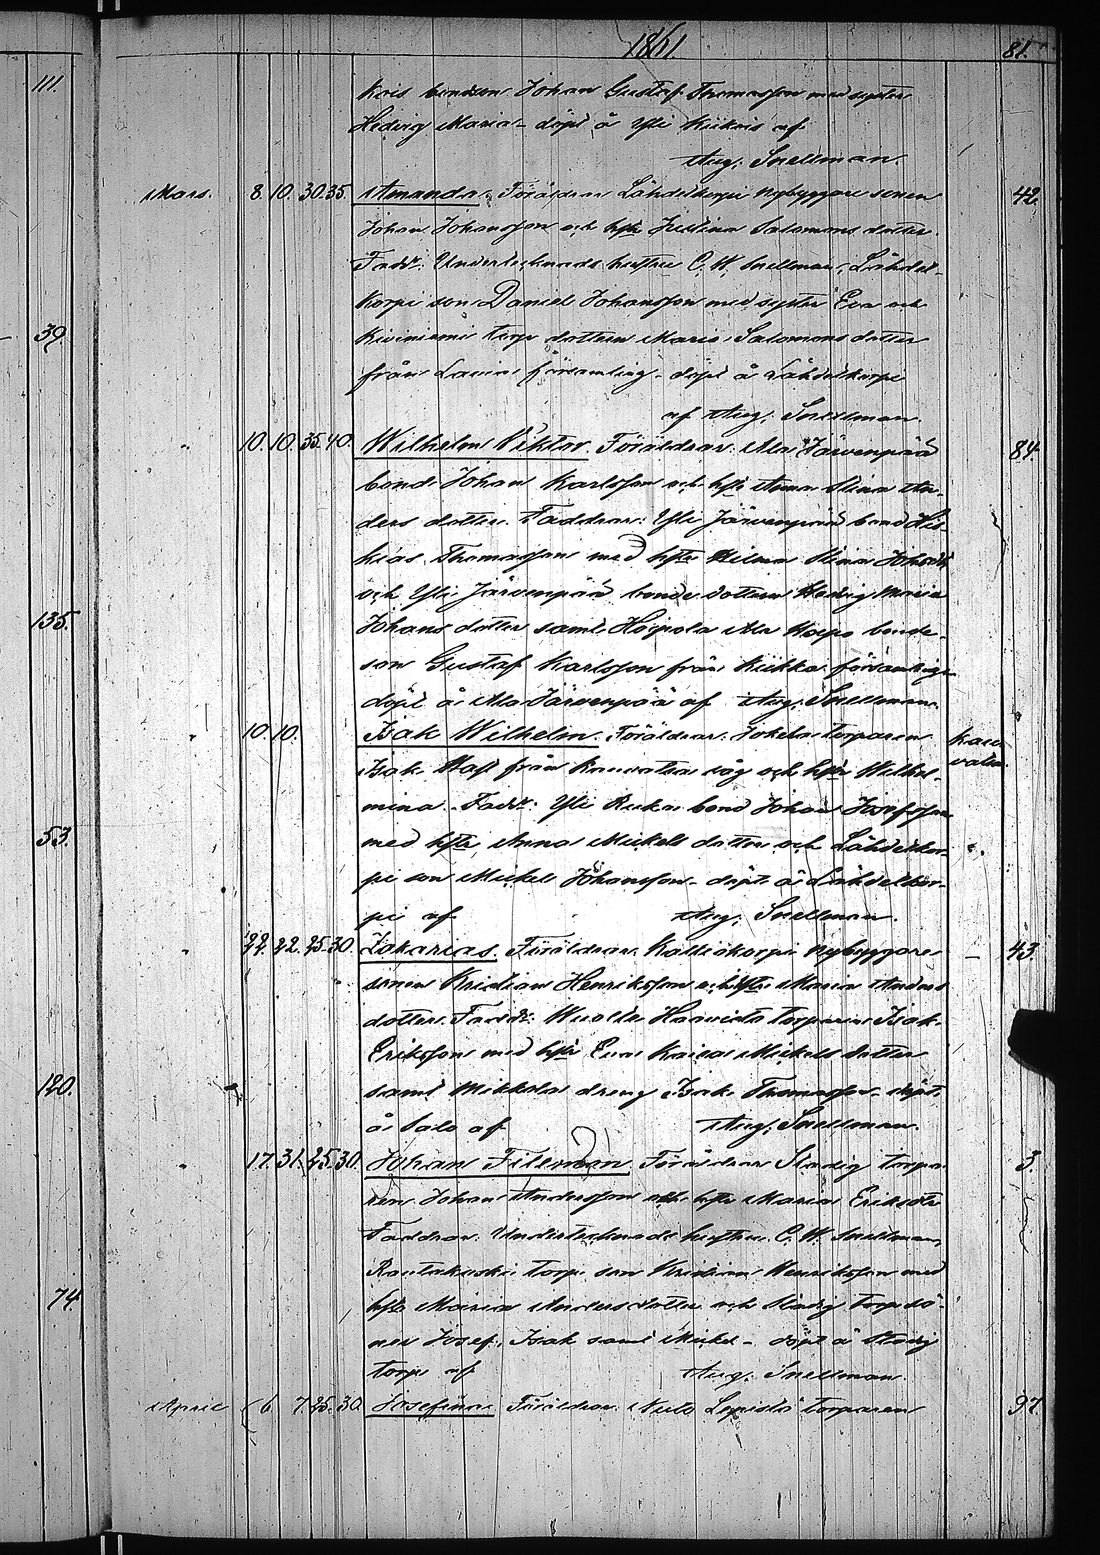 1861. 81.
111.
Kois bondson Johan Gustaf Thomasson med syster
Hedvig Maria - döpt å Yli Kiikois af
Aug. Snellman.
Mars. 8. 10. 30. 35. Amanda. Föräldrar Lähdekorpi nybyggare sonen 42
Johan Johansson och hstr Justina Salomons dotter.
Faddr. Undertecknads hustru C. W. Snellman, Lähdel-
39.
korpi son Daniel Johansson med syster Eva och
Kiviniemi torp dottern Maria Salomons dotter
från Lavia församling - döpt å Lähdelkorpi
af Aug. Snellman.
" 10. 10. 35. 40. Wilhelm Viktor. Föräldrar. Ala Järvenpää 84.
bond. Johan Karlsson och hstr Anna Stina An-
ders dotter. Faddrar. Yli Järvenpää bond His-
kias Thomasson med hstr Stina Johsdr
och Yli Järvenpää bonde dottern Hedvig Maria
135.
Johans dotter samt Ala Korpo bonde-
son Gustaf Karlsson från Kiikka församling
döpt å Ala Järvenpää af Aug. Snellman.
10. 10. Isak Wilhelm. Föräldrar. Jokela Torparen Kau-
vatsa.
Isak från Kauvatsa och hstr Wilhel-
mina. Faddr. Yli Ruka bond Johan Josefsson
53.
med hstr Anna Mickels dotter och Lähdelkor-
pi son Mickel Johansson - döpt å Lähdelkor-
pi af Aug. Snellman.
" 22. 22. 25. 30. Zakarias. Föräldrar. Kalliokorpi Nybyggare - 43.
sonen Kristian Henriksson och hstr Maria Anders
dotter. Faddr. Haavisto torparen Isak
Eriksson med hstr Eva Kaisa Mickels dotter
120.
samt Mikkola dreng Isak Thomasson - döpt
å Salo af Aug. Snellman.
" 17. 31. 25. 30. Johan Fileman. Föräldrar Stadig torpa- 3.
ren Johan Andersson och hstr Maria Eriksdr
Faddrar. Undertecknads hustru C. W. Snellman,
Rautakoski torp. son Kristian Henriksson med
74.
hstr Maria Anders dotter och Stadig torp sö-
ner Josef, Isak samt Mickel - döpt å Stadig
torp af Aug. Snellman
April 6 7. 25. 30. Josefina. Föräldrar. Torparen 97.